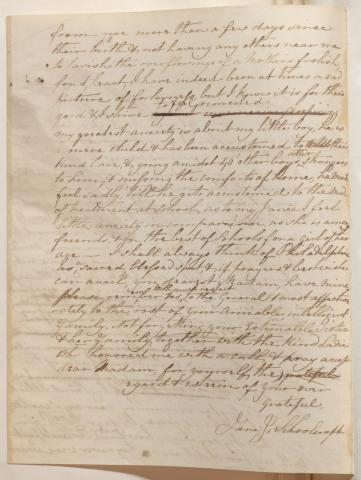 from me more than a few days since
their birth & not having any others near me
to lavish the overflowings of a Mother's foolish
fond heart, I have indeed been at times a sad
picture of forlornity, but I know it is for their
good & I strive to feel reconciled
my greatest anxiety is about my little boy, he is
a mere child & has been accustomed to
kind care, & going amidst 40 other boys, strangers
to him, & missing the comforts of home, he must
feel sadly, till he gets accustomed to the kind
of treatment at school, as to my Janee I feel
little anxiety in comparison, as she is among
friends, & in the best of Schools for a girl of her
age — I shall always think of Philadelphia
as sacred spot & if prayers & best wishes
can avail, you dearest Madam, have mine
please remember me to the General & most affection
ately to the rest of your amiable intelligent
family. Not forgetting your Estimable Sister
& her family together with the kind Ladies
who honored me with a call, & pray accept
dear Madam, for yourself the grateful
regard & esteem of your ever
grateful
Jane J. Schoolcraft